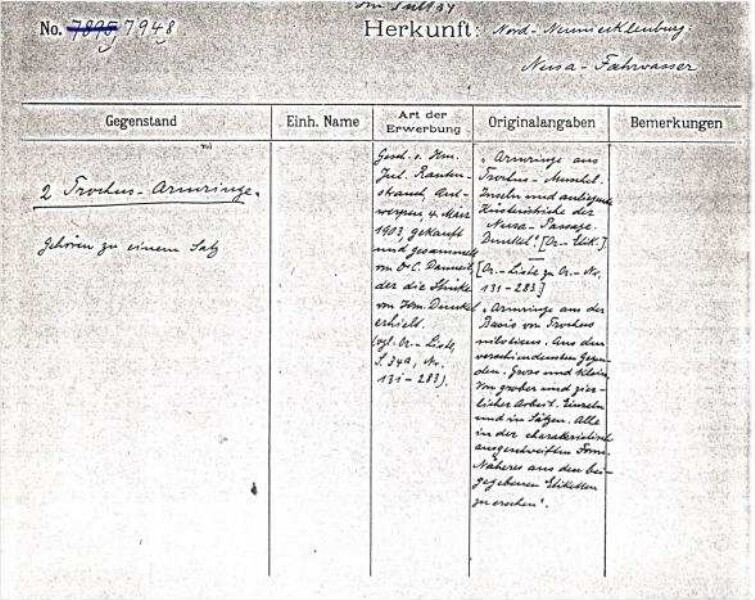 No. 7895, 7948
Herkunft: Nord-Neumecklenburg.
Nusa-Fahrwasser
Gegenstand
Einh. Name
Art der
Erwerbung
Originalangaben
Bemerkungen
2 Trochus-Armringe.
gehören zu einem Satz
Gesch. v. Hrn.
Jul.
4. März
1903, gekauft
und gesammelt
von Dr C.
der die Stücke
von Hrn. Dunkel
erhielt.
(vgl. Or.-Liste,
S. 34a, No.
131-283).
"Armringe aus
Trochus-Muschel.
Inseln und anliegende
der
Nusa-Passage.
Dunkel". [Or.-Etik.].
[Or.-Liste zu Or.-No.
131-283]
"Armringe aus der
Basis von Trochus
niloticus. Aus den
verschiedensten Gegen-
den. Gross und klein,
von grober und zier-
licher Arbeit. Einzeln
und in Sätzen. Alle
in der charakteristisch
ausgeschweiften Form.
Näheres aus den bei-
gegebenen Etiketten
zu ersehen".